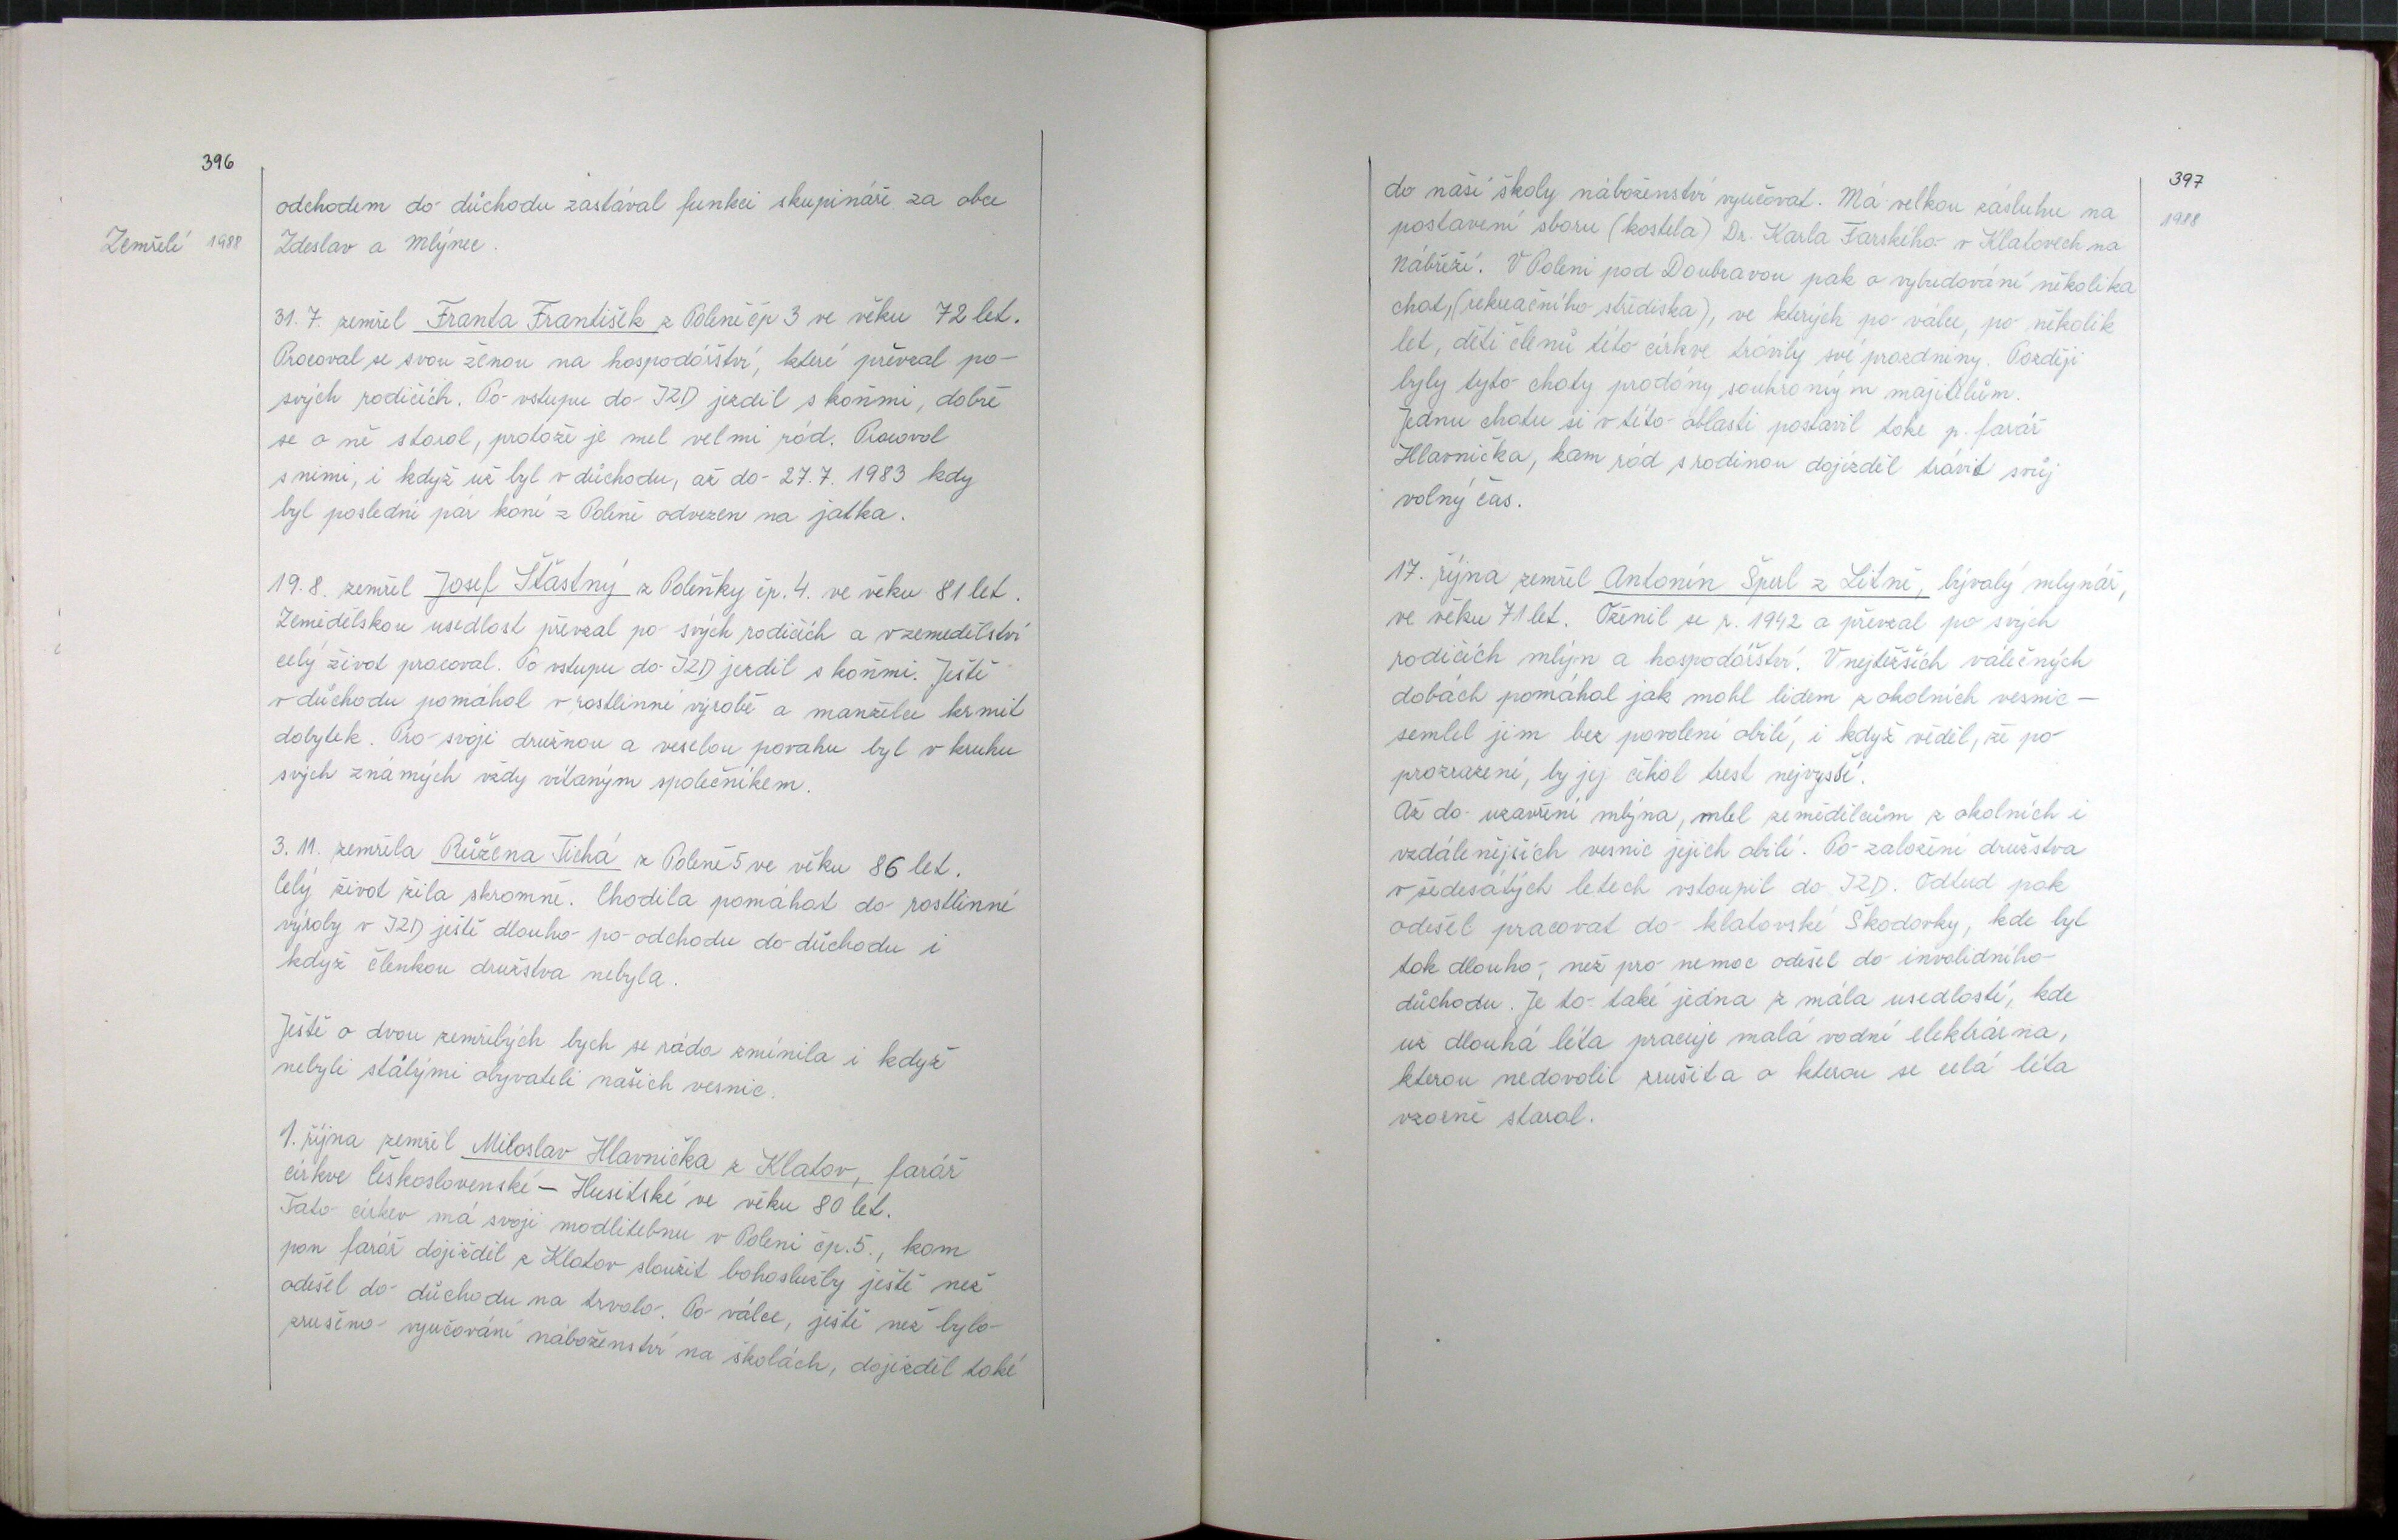 396
odchodem do důchodu zastával funkci skupináře za obce
Zemřelí 1988
Zdeslav a Mlýnec.
31. 7. zemřel Franta František z Poleně čp 3 ve věku 72 let.
Pracoval se svou ženou na hospodářství, které převzal po
svých rodičích. Po vstupu do JZD jezdil s koňmi, dobře
se o ně staral, protože je mel velmi rád. Pracoval
s nimi, i když už byl v důchodu, až do 27. 7. 1983 kdy
byl poslední pár koní z Poleně odvezen na jatka.
19. 8. zemřel Josef Šťastný z Poleňky čp. 4. ve věku 81 let.
Zemědělskou usedlost převzal po svých rodičích a v zemedělství
celý život pracoval. Po vstupu do JZD jezdil s koňmi. Ještě
v důchodu pomáhal v rostlinné výrobě a manželce krmit
dobytek. Pro svoji družnou a veselou povahu byl v kruhu
svých známých vždy vítaným společníkem.
3. 11. zemřela Růžena Tichá z Poleně 5 ve věku 86 let.
Celý život žila skromně. Chodila pomáhat do rostlinné
výroby v JZD ještě dlouho po odchodu do důchodu i
když členkou družstva nebyla.
Ještě o dvou zemřelých bych se ráda zmínila i když
nebyli stálými obyvateli našich vesnic.
1. října zemřel Miloslav Hlavnička z Klatov, farář
církve Československé – Husitské ve věku 80 let.
Tato církev má svoji modlitebnu v Poleni čp. 5., kam
pan farář dojížděl z Klatov sloužit bohoslužby ještě než
odešel do důchodu na trvalo. Po válce, ještě než bylo
zrušeno vyučování náboženství na školách, dojížděl také
397
1988
do naší školy náboženství vyučovat. Má velkou zásluhu na
postavení sboru (kostela) Dr. Karla Farského v Klatovech na
Nábřeží. V Poleni pod Doubravou pak o vybudování několika
chat, (rekreačního střediska), ve kterých po válce, po několik
let, děti členů této církve trávily své prazdniny. Později
byly tyto chaty prodány soukromým majitelům.
Jednu chatu si v této oblasti postavil take p. farář
Hlavnička, kam rád s rodinou dojížděl trávit svůj
volný čas.
17. října zemřel Antonín Šperl z Litně, bývalý mlynář,
ve věku 71 let. Oženil se r. 1942 a převzal po svých
rodičích mlýn a hospodářství. V nejtěžších válečných
dobách pomáhal jak mohl lidem z okolních vesnic –
semlel jim bez povolení obilí, i když věděl, že po
prozrazení, by jej čekal trest nejvyšší.
Až do uzavření mlýna, mlel zemědělcům z okolních i
vzdálenějších vesnic jejich obilí. Po založení družstva
v šedesátých letech vstoupil do JZD. Odtud pak
odešel pracovat do klatovské Škodovky, kde byl
tak dlouho, než pro nemoc odešel do invalidního
důchodu. Je to také jedna z mála usedlostí, kde
už dlouhá léta pracuje malá vodní elektrárna,
kterou nedovolil zrušit a o kterou se celá léta
vzorně staral.